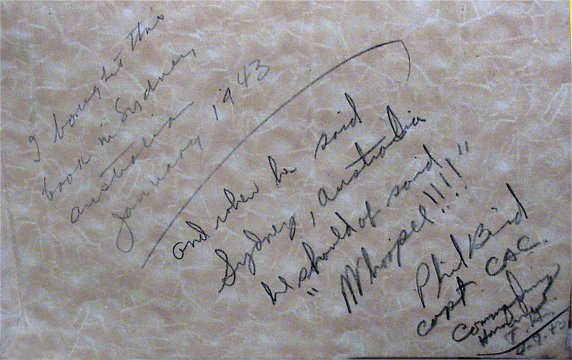 I bought this
book in Sydney,
Australia
January 1943
and when he said
Sydney, Australia
he should of said
"Whoopee!!!!"
Phil Bird
Capt. CAC.
Commanding